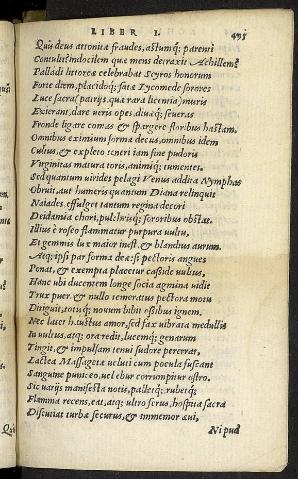 LIBER I. 435
Quis deus attonitæ fraudes, astumq; parenti
Contulit? indocilem quæ mens detraxit Achillem?
Palladi littoreæ celebrabat Scyros honorum
Forte diem, placidoq; satæ Lycomede sorores
Luce sacra (patrijs quæ rara licentia) muris
Exierant, dare veris opes, divæq; severas
Fronde ligare comas & spargere floribus hastam.
Omnibus eximium formæ decus, omnibus idem
Cultus, & expleto teneri iam fine pudoris
Virginitas matura toris, animiq; tumentes.
Sed quantum virides pelagi Venus addita Nymphas
Obruit, aut humeris quantum Diana relinquit
Naiades, effulget tantum regina decori
Deidamia chori, pulchrisq; sororibus obstat.
Illius è roseo flammatur purpura vultu,
Et gemmis lux maior inest, & blandius aurum.
Atq; ipsi par forma deæ: si pectoris angues
Ponat, & exempta placetur casside vultus,
Hanc ubi ducentem longe socia agmina vidit
Trux puer & nullo temeratus pectora motu
Diriguit, totisq; novum bibit ossibus ignem.
Nec latet haustus amor, sed fax vibrata medullis
In vultus, atq; ora redit, lucemq; genarum
Tingit, & impulsam tenui sudore pererrat,
Lactea Massagetæ veluti cum pocula fuscant
Sanguine puniceo, vel ebur corrumpitur ostro.
Sic varijs manifesta notis, palletq; rubetq;
Flamma recens, eat, atq; ultro ferus, hospita sacra
Disiiciat turbæ securus, & immemor ævi,
Ni pud